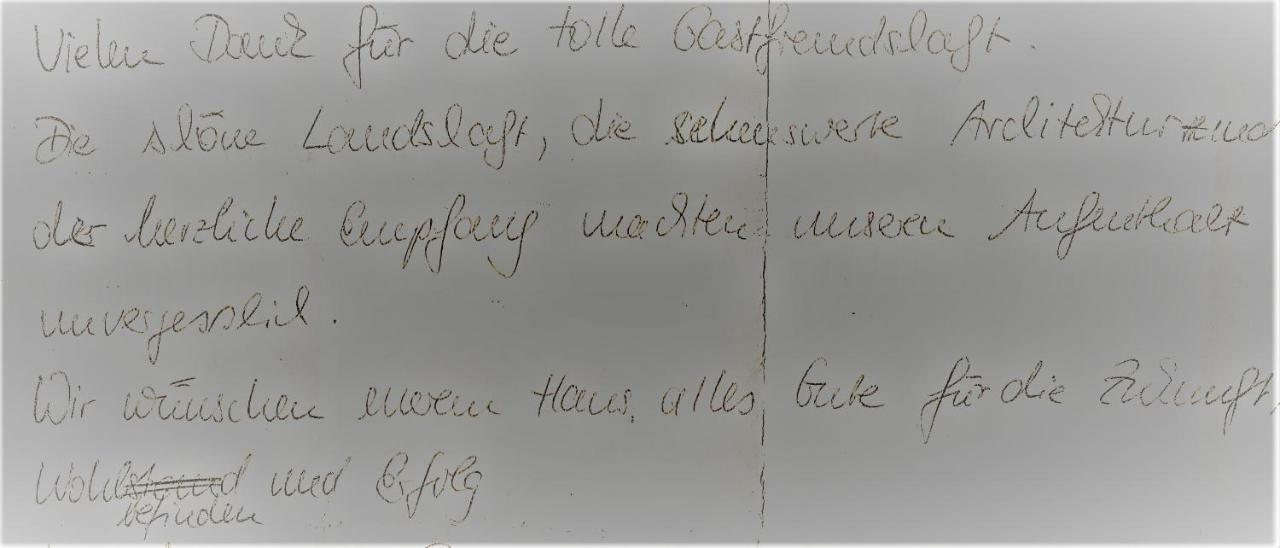 Vielen Dank für die tolle Gastfreundschaft.
Die schöne Landschaft, die sehenswerte Architektur und
der herzliche Empfang machten unseren Aufenthalt
unvergesslich.
Wir wünschen eurem Haus, alles Gute für die Zukunft,
Wohlbefinden und Erfolg